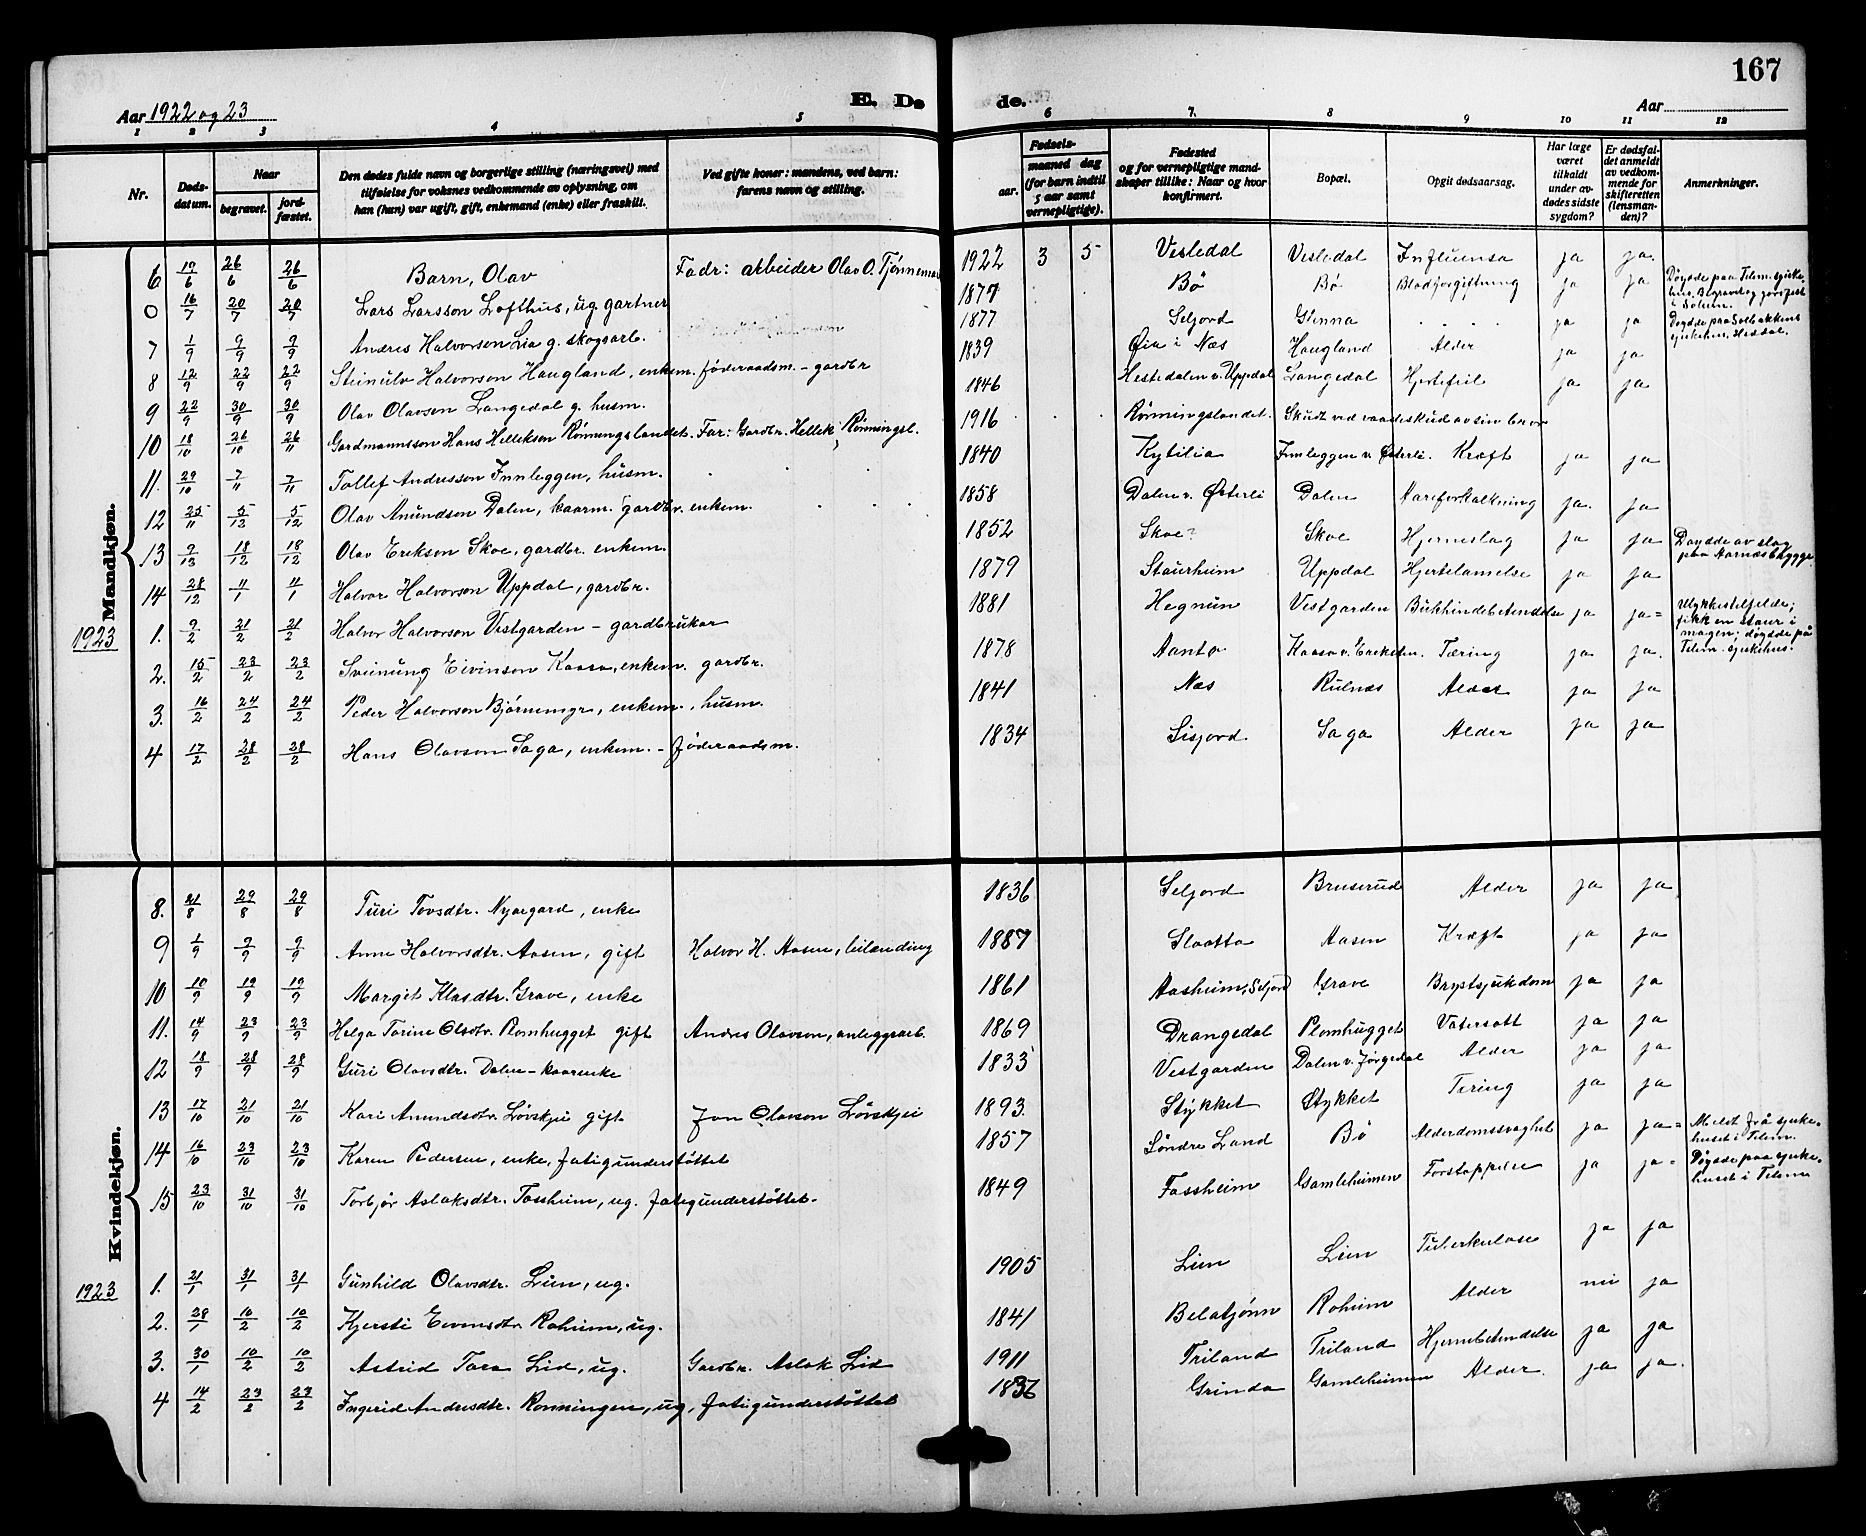 167
Aar 1922 og 23 E. Dø de. Aar
1 2 3 4 5 6 7. 8 9 10 11 12
Nr. Døds-datum. Naar begravet. jord-fæstet. Den dødes fulde navn og borgerlige stilling (næringsvei) med tilføielse for voksnes vedkommende av oplysning, om han (hun) var ugift, gift, enkemand (enke) eller fraskilt. Ved gifte koner: mandens, ved barn: farens navn og stilling. Fødsels- aar. maaned dag (for barn indtil 5 aar samt vernepligtige). Fødested og for vernepligtige mandskaper tillike: Naar og hvor konfirmert. Bopæl. Opgit dødsaarsag. Har læge været tilkaldt under avdødes sidste sygdom? Er dødsfaldet anmeldt av vedkommende for skifteretten (lensmanden)? Anmerkninger.
Mandkjøn.
6 19/6 26/6 26/6 Barn, Olav Fadr: arbeider Olav O. Tjønnemo 1922 3 5 Vesledal Vesledal Influensa ja ja.
0 16/7 20/7 20/7 Lars Larsson Lofthus, ug gartner 1877 Bø Bø Blodforgiftning ja ja Døydde paa Telem. sjukehus. Begravet og jordfest i Solum.
7 1/9 9/9 9/9 Andres Halvorson Lia g. skogsarb. 1877 Seljord Grenna . . . ja ja Døydde paa Solbakkens sjukehus, Heddal.
8 12/9 22/9 22/9 Steinulv Halvorson Haugland, enkem. føderaadsm. – gardbr 1839 Øia i Næs Haugland Alder ja ja
9 22/9 30/9 30/9 Olav Olavson Langedal g. husm. 1846 Hestedalen v. Uppdal Langedal Hjertefeil ja ja
10 18/10 26/10 26/11 Gardmannsson Hans Hellekson Rönningslandet. Far: Gardbr. Hellek Rønningsl. 1916 . . Rønningslandet. Skudt ved vaadeskud av sin bror
11. 29/10 7/11 7/11 Tollef Andresson Innleggen, husm. 1840 Kytilia Innleggen v. Østerli. Kræft ja ja
12 25/11 5/12 5/12 Olav Anundson Dalen, kaarm. gardbr. enkem. 1858 Dalen v. Østerli Dalen Aareforkalkning ja. ja
13 9/13 18/12 18/12 Olav Erikson Skoe, gardbr. enkem. 1852 Skoe? Skoe Hjerneslag ja ja Døydde av slag paa Aarnesbrygge
14 28/12 11/1 11/1 Halvor Halvorson Uppdal, gardbr. 1879 Staurheim Uppdal Hjertelamelse ja ja
1923
1. 9/2 21/2 21/2 Halvor Halvorson Vestgarden – gardbrukar 1881 Hegnün Vestgarden Bukhindebetendelse ja ja = Ulykkestilfelde; fikk en staur i magen; døydde på Telem. sjukehus.
2. 15/2 23/2 23/2 Sveinung Eivinson Kaasa, enkem. gardbr. 1878 Aanto Kaasa v. Erikstein. Tæring ja ja.
3. 16/2 24/2 24/2 Peder Halvorson Bjørnemyr, enkem., husm. 1841 Næs Rulnæs Alder ja ja
4 17/2 28/2 28/2 Hans Olavson Saga, enkem. – føderaadsm. 1834 Sisjord. Saga Alder ja ja
Kvindekjøn.
8. 21/8 29/8 29/8 Turi Tovsdtr. Nyaegard, enke 1836 Seljord Bruserud Alder ja ja
9 1/9 9/9 9/9 Anne Halvorsdtr. Aasen, gift Halvor H. Aasen, leilending 1887 Slaatta Aasen Kræft ja ja
10 10/9 19/9 19/9 Margit Klasdtr. Grave, enke 1861 Aasheim, Seljord Grave Brystsjukdom ja ja
11. 14/9 23/9 23/9 Helga Torine Olsdtr. Plomhugget gift Andres Olavson, anleggsarb. 1869 Drangedal Plomhugget Vatersott ja ja
12 18/9 28/9 28/9 Guri Olavsdtr. Dalen – kaarenke 1833 Vestgarden Dalen v. Jørgedal Alder ja ja
13 17/10 21/10 21/10 Kari Anundsdtr Løvskjei gift Jon Olavson Løvskjei 1893. Stykket Stykket Tæring ja ja
14 16/10 23/10 23/10 Karen Pedersen, enke, fatigunderstøttet 1857 Søndre Land Bø Alderdomssvaghet ja ja = Meldt frå sjukehuset i Telem.
15 23/10 31/10 31/10 Torbjør Aslaksdtr. Fossheim, ug. fatigunderstøttet. 1849 Fossheim Gamleheimen Forstoppelse ja ja = Døydde paa sjukehuset i Telem
1923
1. 21/1 31/1 31/1 Gunhild Olavsdtr. Lien, ug. 1905 Lien Lien Tuberkulose ja ja
2. 28/1 10/2 10/2 Kjersti Eivinsdtr Roheim, ug. 1841 Belatjønn Roheim Alder nei ja
3. 30/1 10/2 10/2 Astrid Tara Lid, ug. Gardbr. Aslak Lid 1911 Triland Triland Hjernebetendelse ja ja
4 14/2 23/2 23/2 Ingerid Andresdtr. Rønningen, ug, fatigunderstøttet 1836 Grinda Gamleheimen Alder. ja ja.